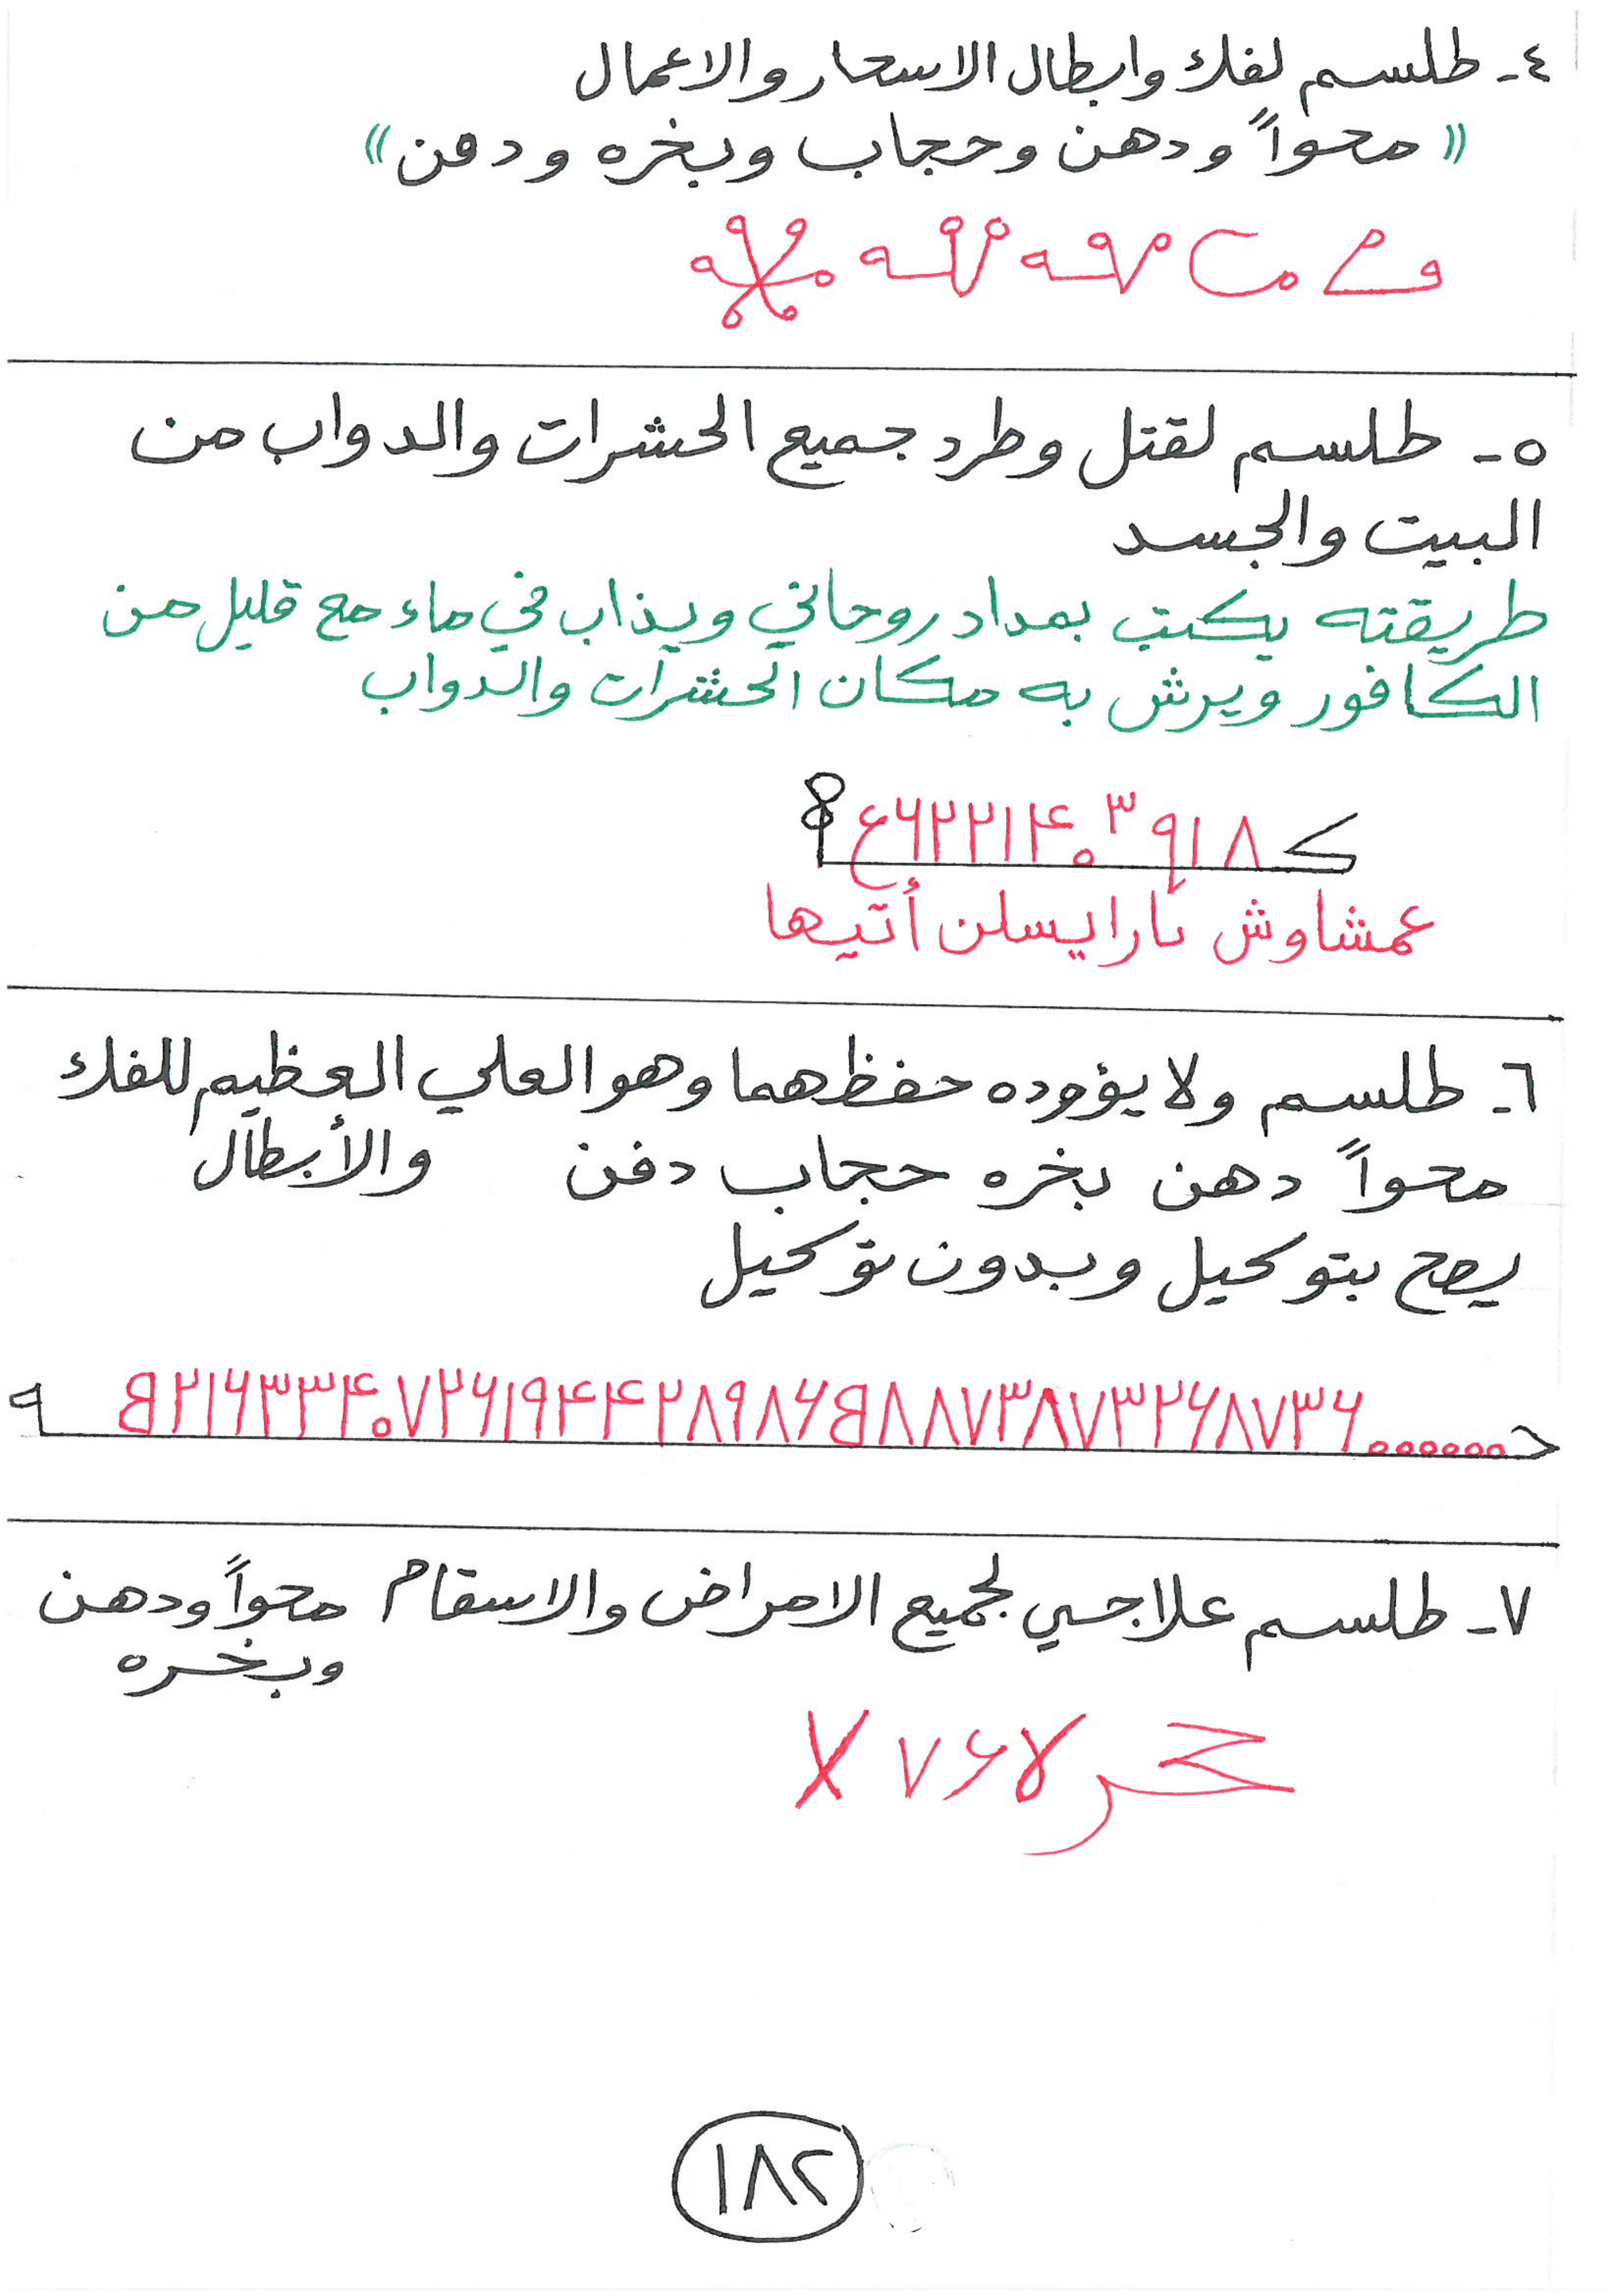 ٤- طلسم لفك وابطال الاسحار والاعمال
«محواً ودهن وحجاب وبخره ودفن»
٥- طلسم لقتل وطرد جميع الحشرات والدواب من
البيت والجسد
طريقته يكتب بمداد روحاني ويذاب في ماء مع قليل من
الكافور ويرش به مكان الحشرات والدواب
عمشاوش نارايسلن أتيها
٦- طلسم ولا يؤوده حفظهما وهو العلي العظيم للفك
والأبطال
محواً دهن بخره حجاب دفن
يصح بتوكيل وبدون توكيل
٧- طلسم علاجي لجميع الامراض والاسقام محواً ودهن
وبخره
١٨٢